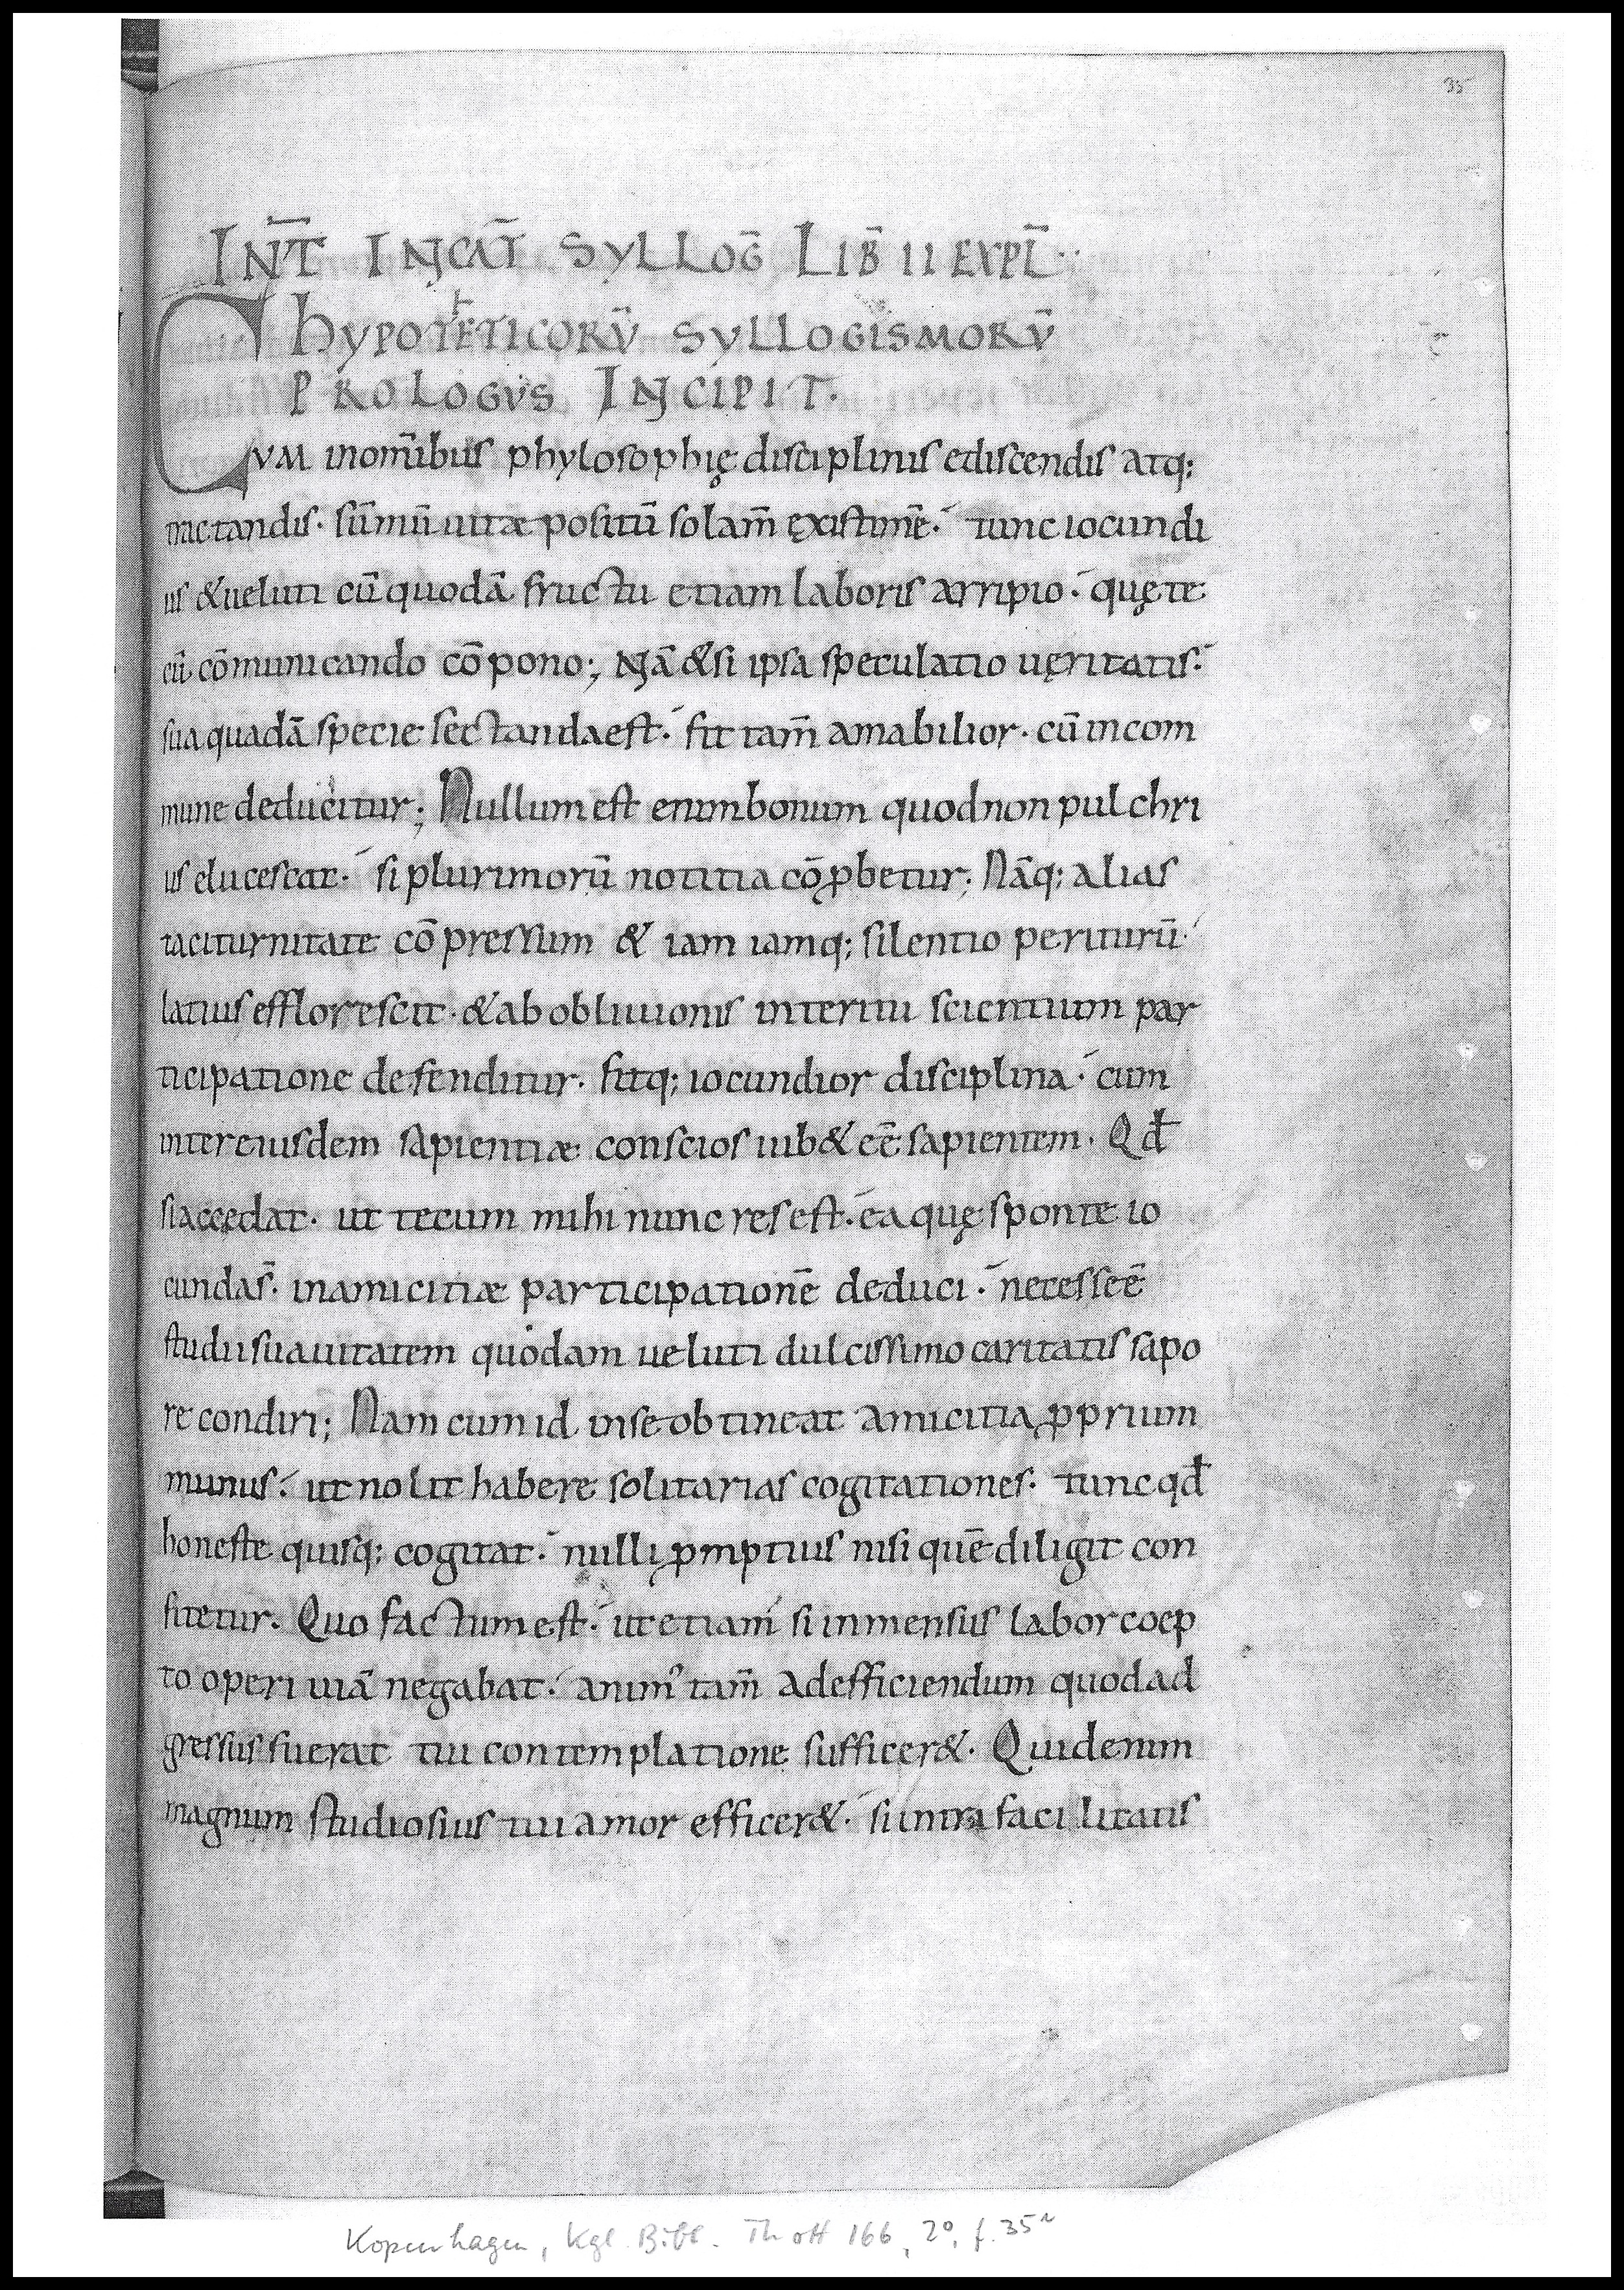 35
INT̄ INCAT̄ SYLLOḠ LIB̄ II EXPL̄.
HYPOTETICORŪ SYLLOGISMORŪ
PROLOGVS INCIPIT.
CVM inom̄ibus phylosophię disciplinis ediscendis atq;
tractandis· sūmū uitæ positū solam̄ ęxistimē·́ tunc iocundi
us &ueluti cū quodā fructu etiam laboris arripio·́ quę te
cū cōmunicando cōpono; Nā &si ipsa speculatio uęritatis·́
sua quadā specie sectandaest·́ fit tam̄ amabilior· cū incom
mune deducitur; Nullum est enim bonum quod non pulchri
us elucescat·́ si plurimorū notitia cōꝓbetur; Nāq; alias
taciturnitate cōpressum & iam iamq; silentio periturū·́
latius efflorescit· &ab obliuionis interitu scientium par
ticipatione defenditur· fitq; iocundior disciplina·́ cum
inter eiusdem sapientiæ conscios iub& eē sapientem· Qđ
si accedat· ut tecum mihi nunc res est·́ ea quę sponte io
cundas̄· inamicitiæ participationē deduci·́ necesseē
studii suauitatem quodam ueluti dulcissimo caritatis sapo
re condiri; Nam cum id inse obtineat amicitia ꝓprium
munus·́ ut nolit habere solitarias cogitationes· tunc qđ
honeste quisq; cogitat·́ nulli ꝓmptius nisi quē diligit con
fitetur· Quo factum est·́ ut etiam si inmensus labor coep
to operi uiā negabat·́ animꝰ tam̄ adefficiendum quod ad
gressus fuerat tui contemplatione sufficer&· Quid enim
magnum studiosius tui amor efficer&·́ si intra facilitatis
Kopenhagen, Kgl. Bibl. Thott 166, 2°, f. 35r